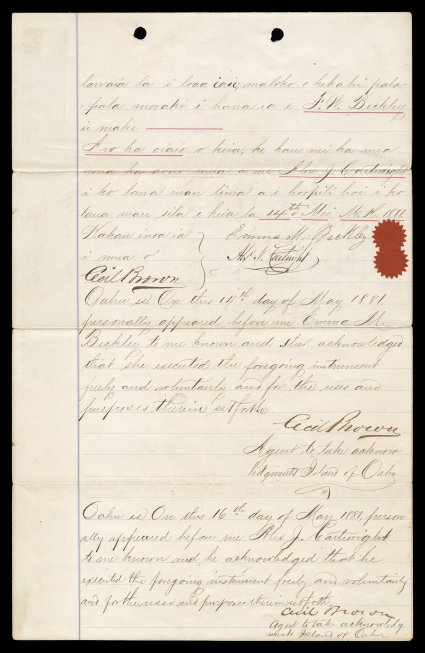 lawaia la i loaa iaia, maloko o kekahi pala-
pala moraki i hana ia e F. W. Beckley
i make
A no ka oiaio o keia, ke kau nei ka mua
Alex J. Cartwright
i ko laua mau lima a i hoopili hoi i ko
laua mau sila i keia la 14th Mei M.H. 1881
Kakau inoa ia
i mua o
Emma M. Beckley
Alex. J. Cartwright
Cecil Brown
Oahu ss. On this 14th day of May 1881
personally appeared before me Emma M.
Beckley to me known and she acknowledged
that she executed the foregoing instrument
freely and voluntarily and for the uses and
purposes therein set forth
Cecil Brown
Agent to take acknow
ledgments Island of Oahu
Oahu ss. On this 16th day of May 1881, person
ally appeared before me Alex J. Cartwright
to me known and he acknowledged that he
executed the foregoing instrument freely and voluntarily
and for the uses and purposes therein set forth
Cecil Brown
Agent to take acknowledg
ments Island of Oahu